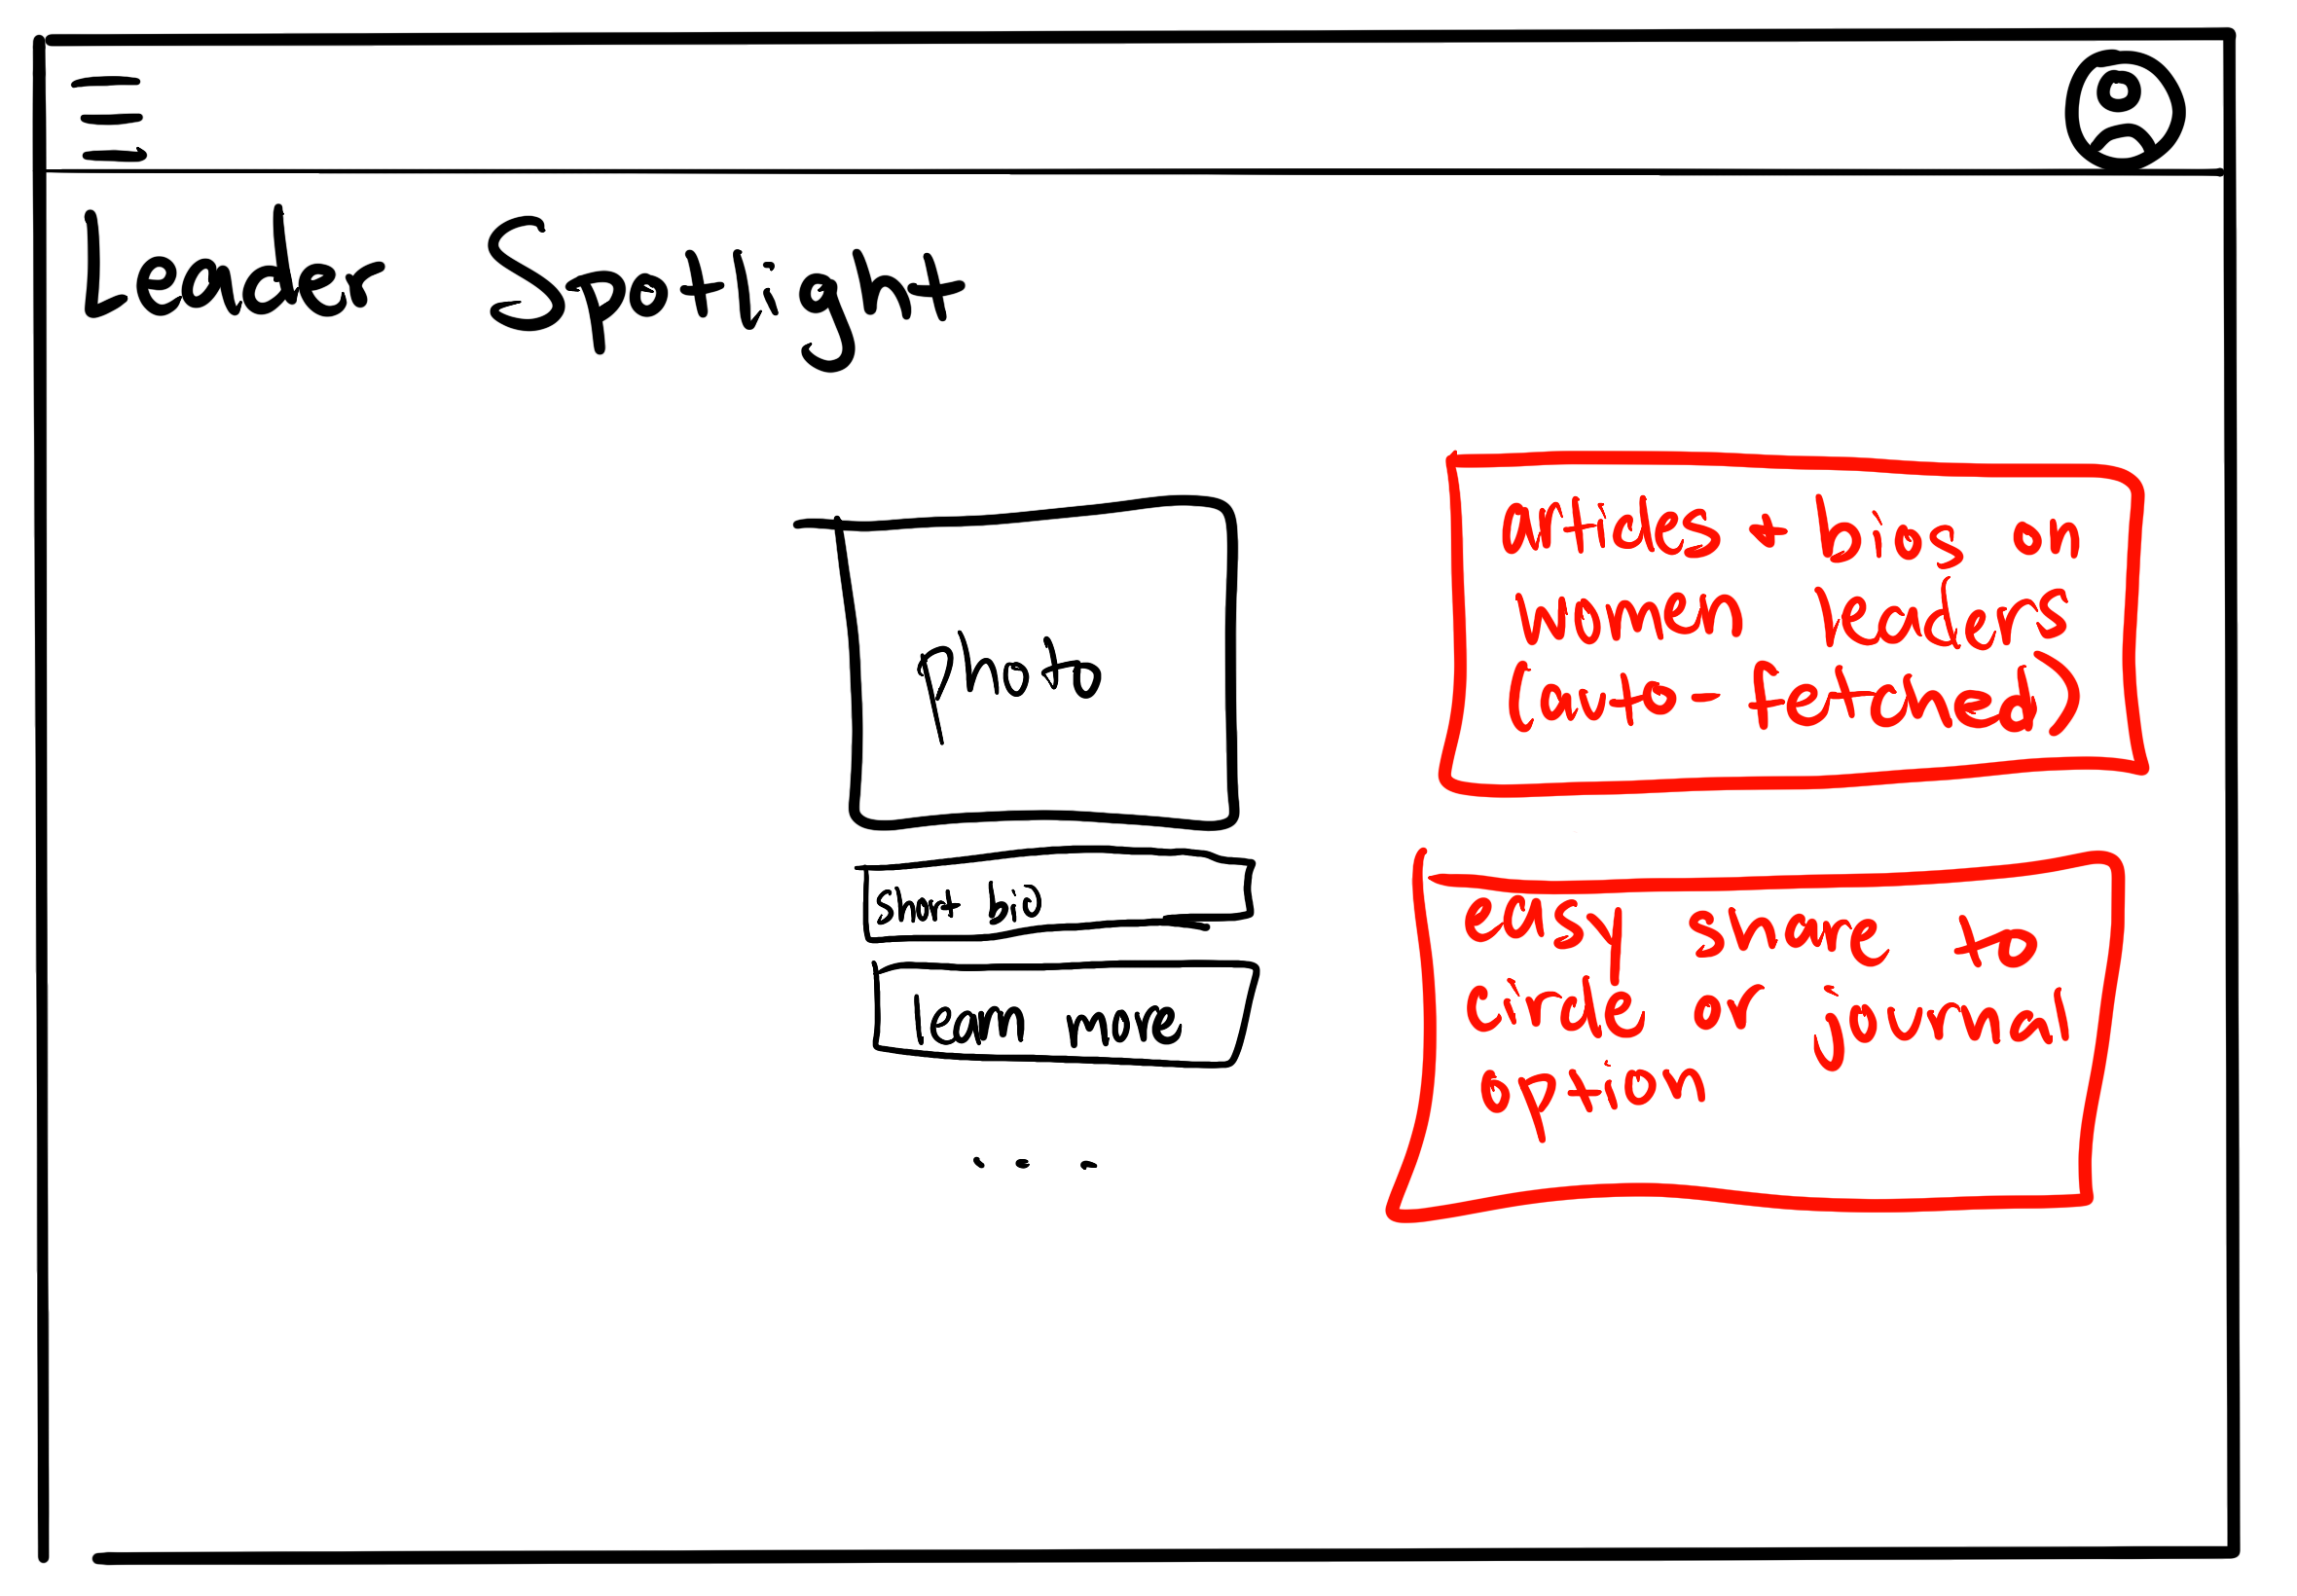 Leader Spotlight
photo
short bio
learn more
...
articles + bios on
women leaders
(auto-fetched)
easy share to
circle or journal
option